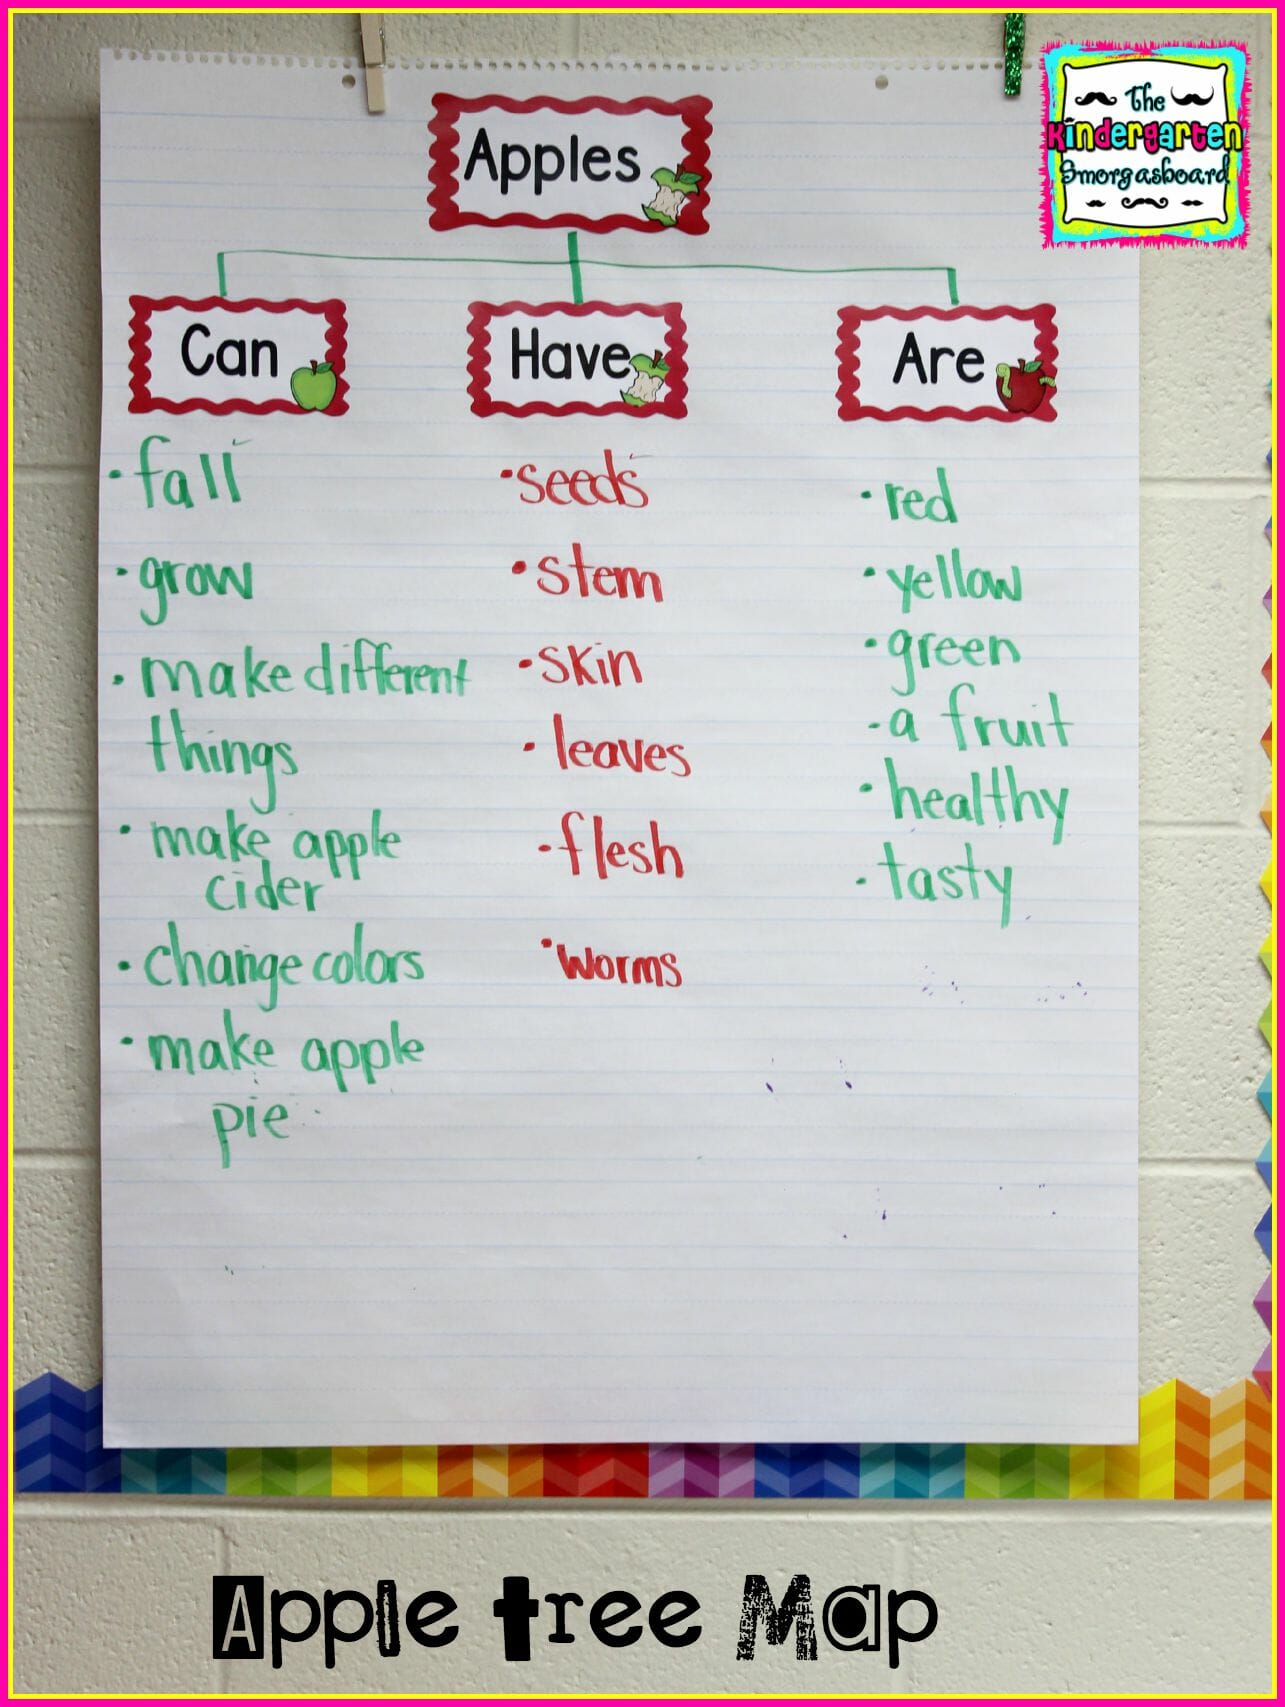 The
Kindergarten
Smorgasboard
Apples
Can
Have
Are
• fall
• grow
• make different
things
• make apple
cider
• change colors
• make apple
pie
• seeds
• stem
• skin
• leaves
• flesh
• worms
• red
• yellow
• green
• a fruit
• healthy
• tasty
Apple tree Map